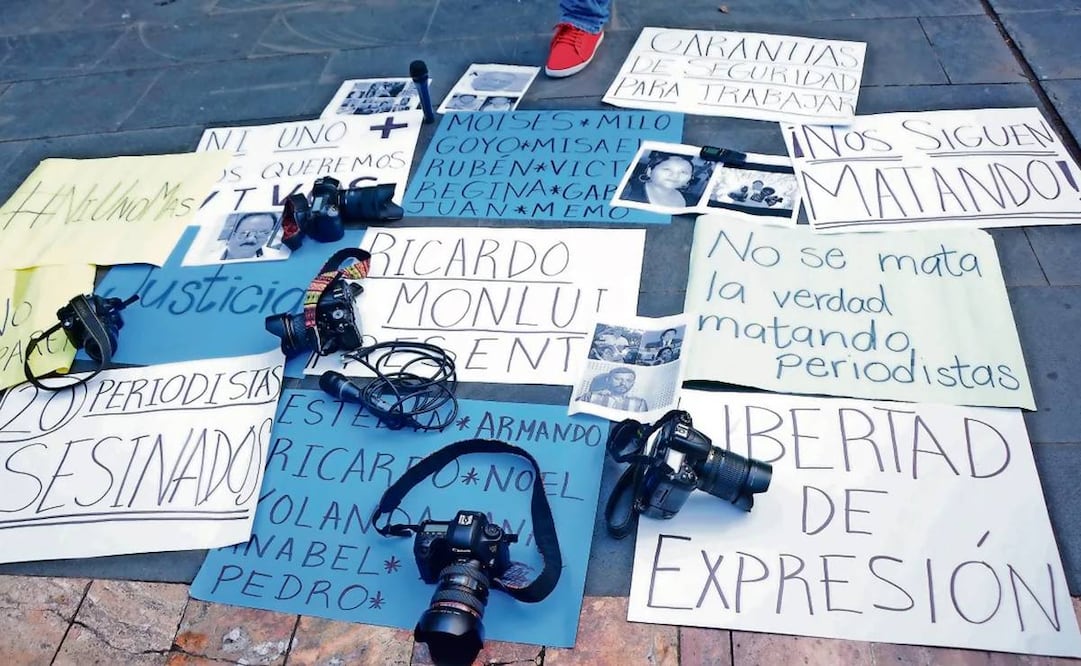 GARANTIAS
DE SEGURIDAD
PARA TRABAJAR
NI UNO +
QUEREMOS
MOISES * MILO
GOYO * MISAEL
RUBÉN * VICT
REGINA * GAB
JUAN * MEMO
¡NOS SIGUEN
MATANDO!
#NiUnoMas
Justicia
RICARDO
MONLUI
PRESENT
No se mata
la verdad
matando
periodistas
NO
20 PERIODISTAS
ASESINADOS
ESTEBAN * ARMANDO
RICARDO * NOEL
YOLANDA
ANABEL *
PEDRO *
LIBERTAD
DE
EXPRESIÓN
Canon